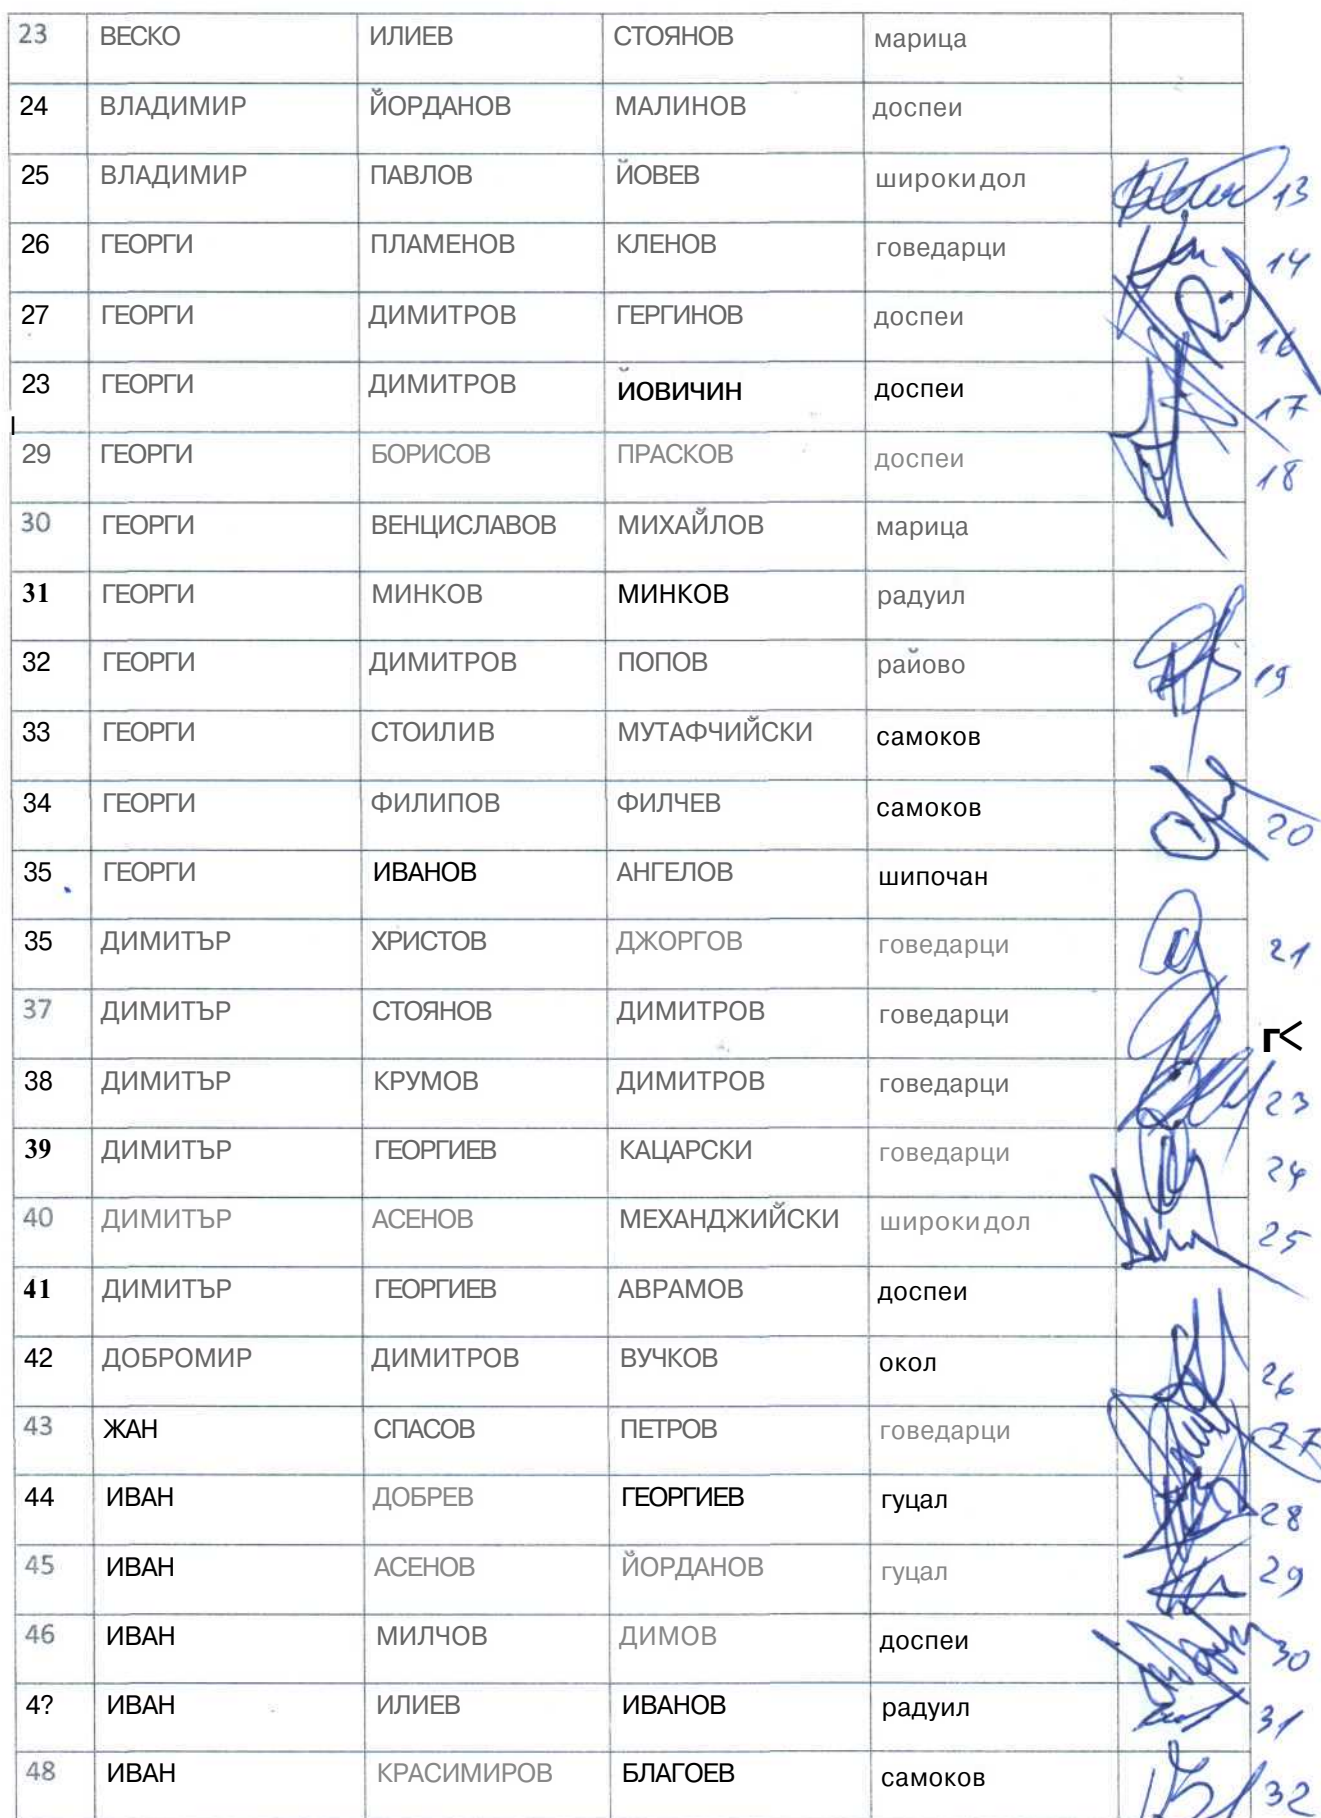 23 ВЕСКО ИЛИЕВ СТОЯНОВ марица
24 ВЛАДИМИР ЙОРДАНОВ МАЛИНОВ доспеи
25 ВЛАДИМИР ПАВЛОВ ЙОВЕВ широки дол 13
26 ГЕОРГИ ПЛАМЕНОВ КЛЕНОВ говедарци 14
27 ГЕОРГИ ДИМИТРОВ ГЕРГИНОВ доспеи 16
23 ГЕОРГИ ДИМИТРОВ ЙОВИЧИН доспеи 17
29 ГЕОРГИ БОРИСОВ ПРАСКОВ доспеи 18
30 ГЕОРГИ ВЕНЦИСЛАВОВ МИХАЙЛОВ марица
31 ГЕОРГИ МИНКОВ МИНКОВ радуил
32 ГЕОРГИ ДИМИТРОВ ПОПОВ райово 19
33 ГЕОРГИ СТОИЛИВ МУТАФЧИЙСКИ самоков
34 ГЕОРГИ ФИЛИПОВ ФИЛЧЕВ самоков 20
35 ГЕОРГИ ИВАНОВ АНГЕЛОВ шипочан
35 ДИМИТЪР ХРИСТОВ ДЖОРГОВ говедарци 21
37 ДИМИТЪР СТОЯНОВ ДИМИТРОВ говедарци г<
38 ДИМИТЪР КРУМОВ ДИМИТРОВ говедарци 23
39 ДИМИТЪР ГЕОРГИЕВ КАЦАРСКИ говедарци 24
40 ДИМИТЪР АСЕНОВ МЕХАНДЖИЙСКИ широки дол 25
41 ДИМИТЪР ГЕОРГИЕВ АВРАМОВ доспеи
42 ДОБРОМИР ДИМИТРОВ ВУЧКОВ окол 26
43 ЖАН СПАСОВ ПЕТРОВ говедарци 27
44 ИВАН ДОБРЕВ ГЕОРГИЕВ гуцал 28
45 ИВАН АСЕНОВ ЙОРДАНОВ гуцал 29
46 ИВАН МИЛЧОВ ДИМОВ доспеи 30
4? ИВАН ИЛИЕВ ИВАНОВ радуил 31
48 ИВАН КРАСИМИРОВ БЛАГОЕВ самоков 32